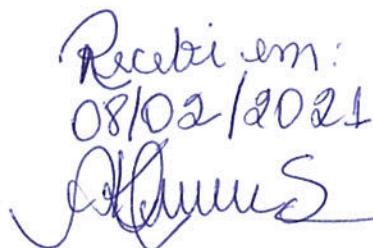 Recebi em:
08/02/2021